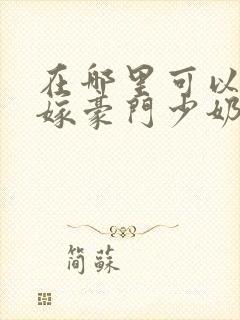 在哪里可以
嫁豪門少奶
简蘇